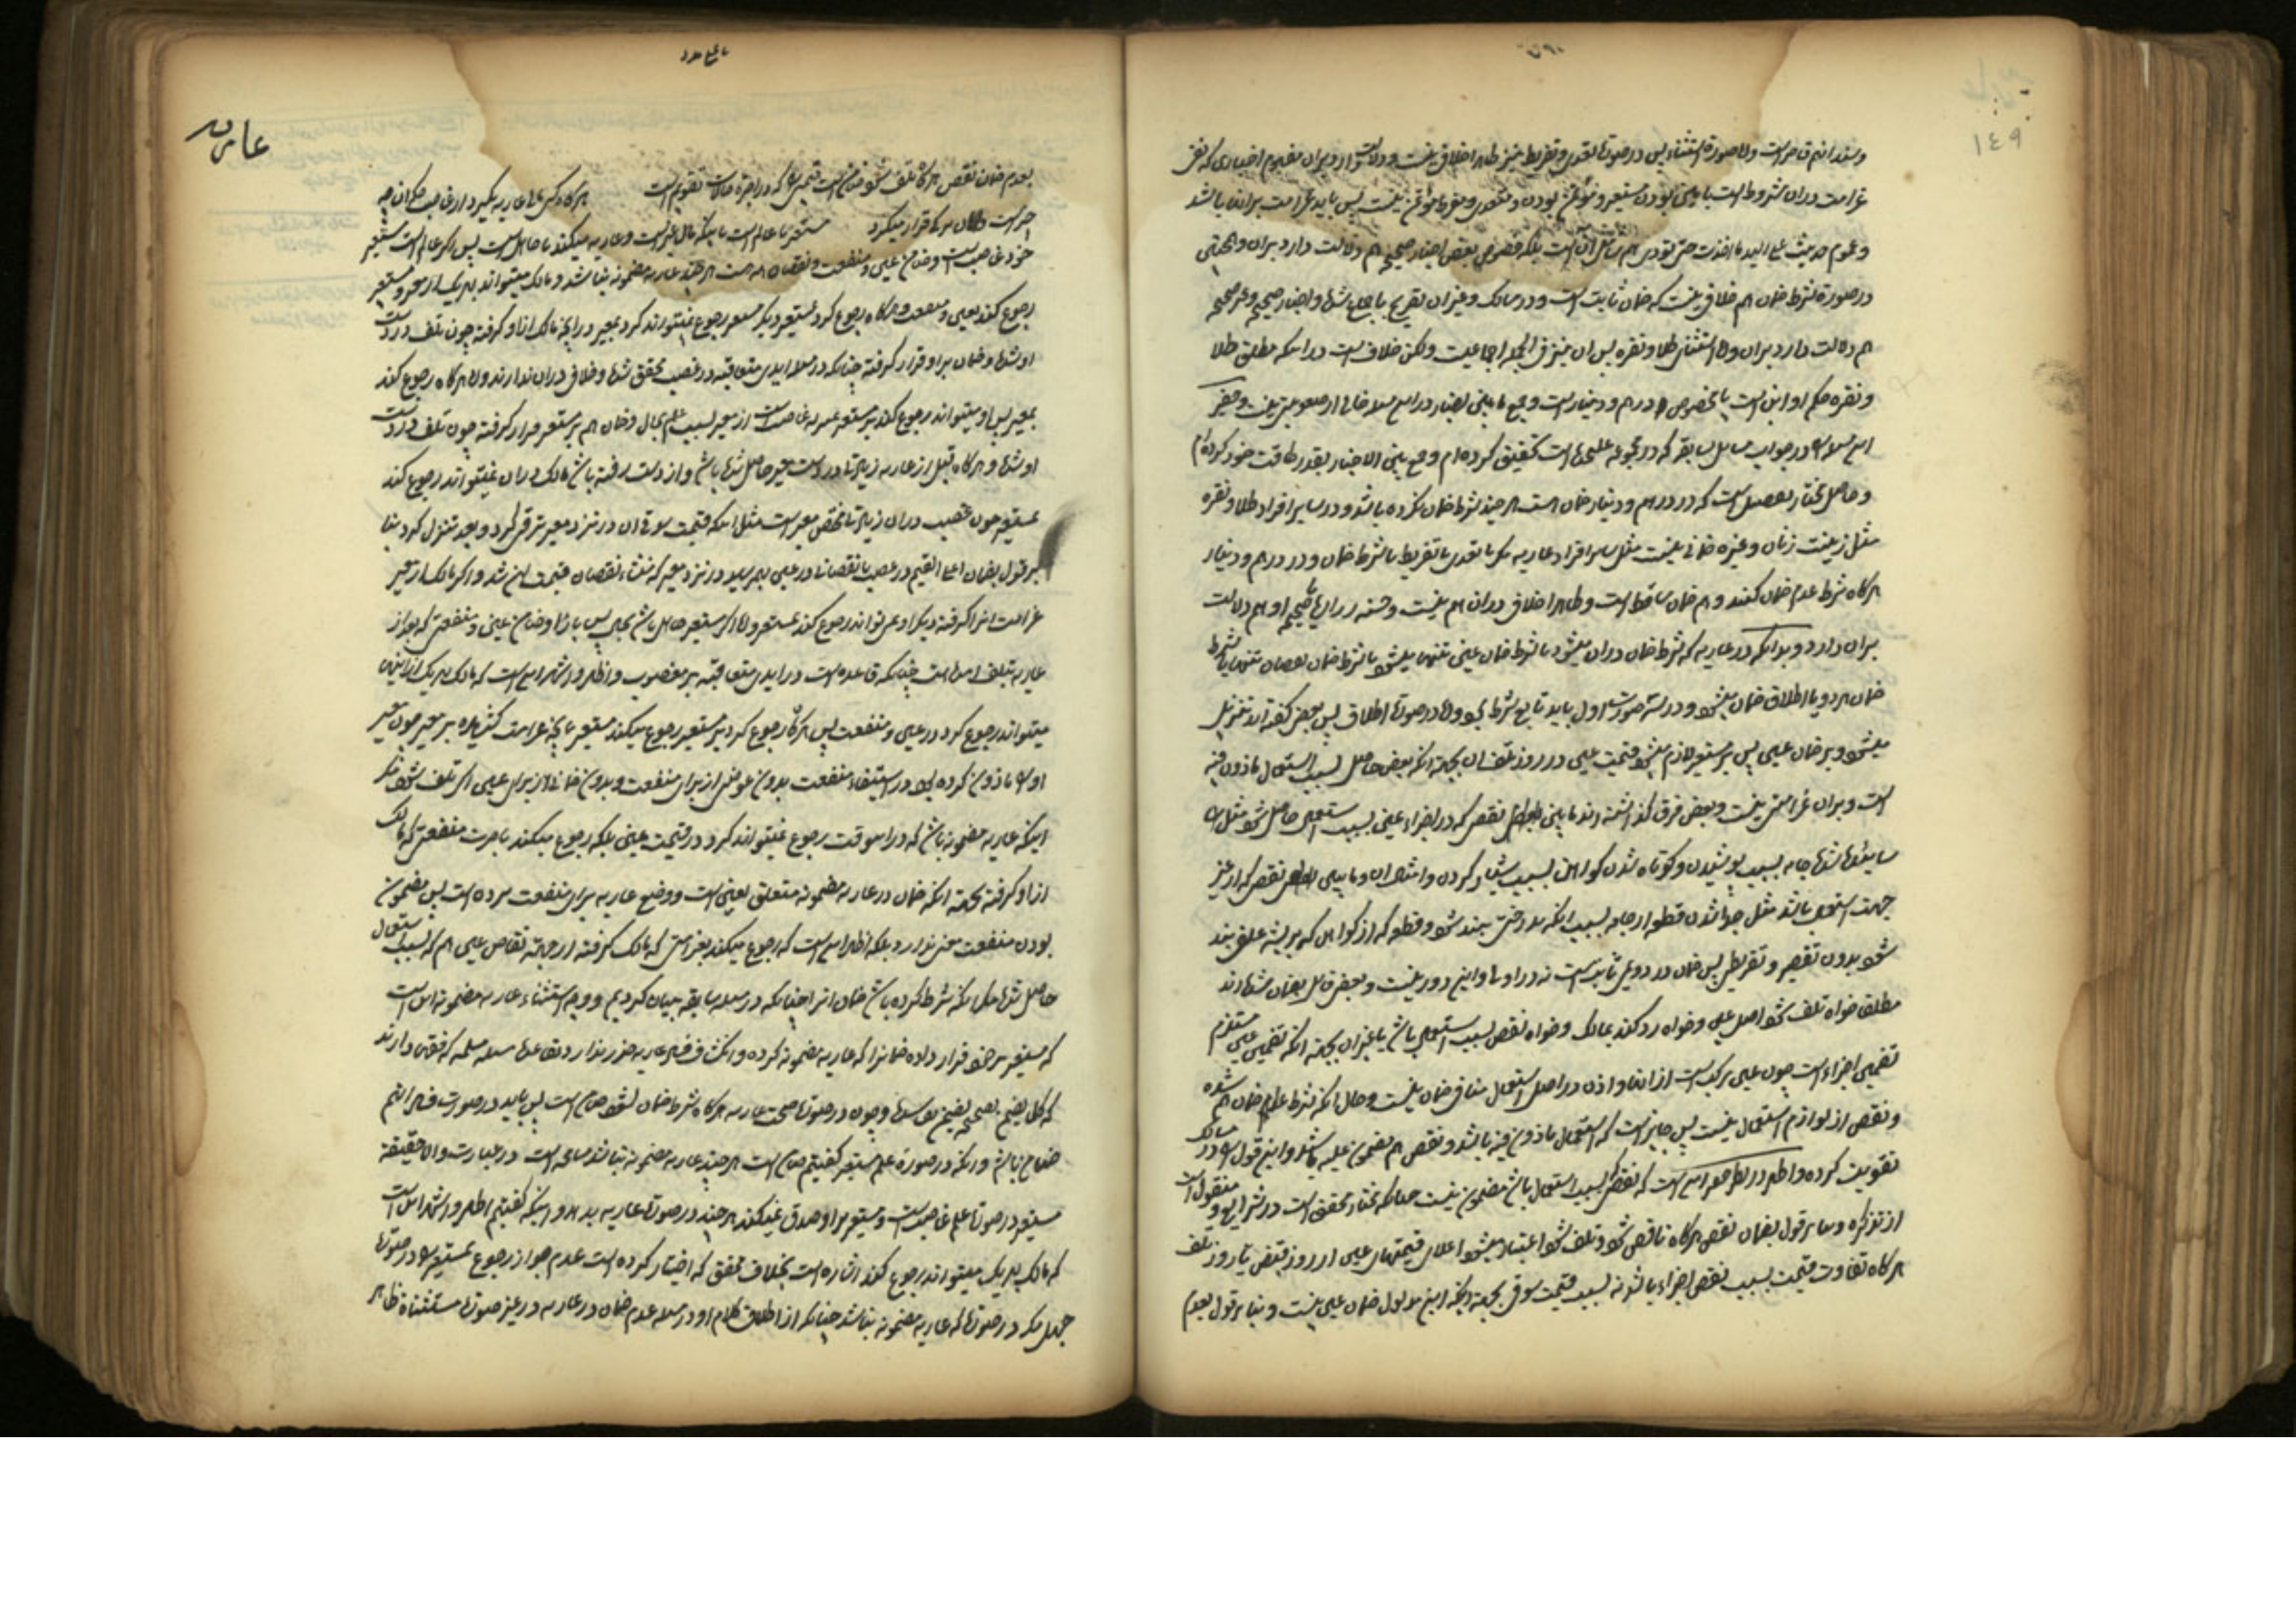 ١٤٩
و سند آنهم قاصر است و اما صورة استثناء پس در صورت تعدی و تفریط نیز ظاهرا خلافی نیست و دلالت دارد بران مفهوم اخباری که نفی
غرامت دران مشروط است با امین بودن مستعیر و مؤتمن بودن و متعدی و مفرط مؤتمن نیست پس باید غرامت بر آنها باشد
و عموم حدیث علی الید ما اخذت حتی تؤدی هم شامل آن است بلکه خصوص بعض اخبار صحیحه هم دلالت دارد بران و همچنین
در صورة شرط ضمان هم خلافی نیست که ضمان ثابت است و در مسالک و غیر ان تصریح باجماع شده و اخبار صحیحه و غیر صحیحه
هم دلالت دارد بران و اما استثنای طلا و نقره پس ان نیز فی الجملة اجماعیست ولکن خلاف است در اینکه مطلق طلا
و نقره حکم او این است یا مخصوص درهم و دینار است و جمع ما بین اخبار در این مسئله خالی از صعوبتی نیست و حقیر
این مسئله را در جواب مسایل سابقه که در مجموعه علیحده است تحقیق کرده‌ام و جمع بین الاخبار بقدر طاقت خود کرده‌ام
و حاصل مختار تفصیل است که در درهم و دینار ضمان هست هر چند شرط ضمان نکرده باشد و در سایر افراد طلا و نقره
مثل زینت زنان و غیره ضمانی نیست مثل سایر افراد عاریه مگر با تعدی یا تفریط یا شرط ضمان و در درهم و دینار
هرگاه شرط عدم ضمان کنند هم ضمان ساقط است و ظاهرا خلافی دران هم نیست و حسنه زراره یا صحیحه او هم دلالت
بران دارد و بدانکه در عاریه که شرط ضمان دران میشود یا شرط ضمان عین تنها میشود یا شرط ضمان نقصان تنها یا شرط
ضمان هر دو یا اطلاق ضمان میشود و در سه صورت اول باید تابع شرط بود و اما در صورت اطلاق پس بعض گفته‌اند تنزیل
میشود بر ضمان عین پس بر مستعیر لازم میشود قیمت عین در روز تلف ان بجهة انکه نقص حاصل بسبب استعمال ماذون فیه
است و بران غرامتی نیست و بعض فرق گذاشته‌اند ما بین نقص که در اجزاء عین بسبب استعمال حاصل شود مثل
ساییده شدن جامه بسبب پوشیدن و کوتاه شدن گواهن بسبب شیار کردن و امثال ان و ما بین نقص که از غیر
جهت استعمال باشد مثل جدا شدن قطعه از جامه بسبب اینکه بدرختی بند شود و قطعه که از گواهن که بریشه علفی بند
شود بدون تقصیر و تفریط پس ضمان در دویمی ثابت است نه در اولی و این دور نیست و بعض قایل بضمان شده‌اند
مطلقا خواه تلف شود اصل عین و خواه رد کند بمالک و خواه نقص بسبب استعمال باشد یا غیر ان بجهة انکه تضمین عین مستلزم
تضمین اجزاء است چون عین مرکب است از انها و اذن در اصل استعمال منافی ضمان نیست و حال انکه شرط ضمان هم شده
و نقص از لوازم استعمال نیست پس جایز است که استعمال ماذون فیه باشد و نقص هم مضمون علیه باشد و این قول را در مسالک
تقویت کرده و اظهر در نظر حقیر این است که نقص که بسبب استعمال باشد مضمون نیست چنانکه مختار محقق است در شرایع و منقول است
از تذکره و بنابر قول بضمان نقص هرگاه ناقص شود و تلف شود اعتبار میشود اعلای قیمتهای عین از روز قبض تا روز تلف
هرگاه تفاوت قیمت بسبب نقص اجزاء باشد نه بسبب قیمت سوقی بجهة انکه این مدلول ضمان عین نیست و بنابر قول بعدم
عاریه
بعدم ضمان نقص هرگاه تلف شود ضامن است قیمتی را که در اخر حالات تقویم است هرگاه کسی مال عاریه بگیرد از غاصب حکم ان چه
چیز است و ضمان بر که قرار میگیرد مستعیر یا عالم است باینکه مال غیر است و عاریه میکند یا جاهل است پس اگر عالم است مستعیر
خود غاصب است و ضامن عین و منفعت و نقصان همه هست هر چند عاریه مضمونه نباشد و مالک میتواند بهر یک از معیر و مستعیر
رجوع کند بعین و منفعت و هرگاه رجوع کرد بمستعیر دیگر مستعیر رجوع نمیتواند کرد بمعیر در آنچه مالک از او گرفته چون تلف در دست
او شده و ضمان بر او قرار گرفته چنانکه در مسئله ایدی متعاقبه در غصب محقق شده و خلافی دران ندارند و اما هرگاه رجوع کند
بمعیر پس او میتواند رجوع کند بر مستعیر غاصب است از معیر بسبب علم بحال و ضمان هم بر مستعیر قرار گرفته چون تلف در دست
او شده و هرگاه قبل از عاریه زیادتی در دست معیر حاصل شده باشد و از دست رفته باشد مالک دران نمیتواند رجوع کند
بمستعیر چون غصب دران زیادتی مختص معیر است مثل اینکه قیمت سوقی ان در نزد معیر ترقی کرد و بعد تنزل کرد بنا
بر قول بضمان اعلی القیم در غصب یا نقصانی در عین بهم رسید در نزد معیر که منشاء نقصان قیمت ان شد و اگر مالک از معیر
غرامت انرا گرفته دیگر او نمی‌تواند رجوع کند بمستعیر و اما اگر مستعیر جاهل باشد بحال پس باز او ضامن عین و منفعتی که بعد از
عاریه تلف شده است چنانکه قاعده است در ایدی متعاقبه بر مغصوب و اظهر و اشهر این است که مالک بهر یک از اینها
میتواند رجوع کرد در عین و منفعت پس هرگاه رجوع کرد بر مستعیر رجوع میکند مستعیر بانچه غرامت کشیده بر معیر چون معیر
او را ماذون کرده بود در استیفاء منفعت بدون عوض از برای منفعت و بدون ضمانی از برای عین اگر تلف شود مگر
اینکه عاریه مضمونه باشد که در اینوقت رجوع نمیتواند کرد در قیمت عین بلکه رجوع میکند باجرت منفعتی که مالک
از او گرفته بجهة انکه ضمان در عاریه مضمونه متعلق بعین است و وضع عاریه برای منفعت بردن است پس مضمون
بودن منفعت معنی ندارد بلکه اظهر این است که رجوع میکند بغرامتی که مالک گرفته از جهة نقص عین هم که بسبب استعمال
حاصل شده مگر انکه شرط کرده باشد ضمان انرا چنانکه در مسئله سابقه بیان کردیم و وجه استثناء عاریه مضمونه این است
که مستعیر بر خود قرار داده ضمانرا که عاریه مضمونه کرده و انکشاف فساد عاریه ضرر ندارد بقاعده مسلمه که فقهاء دارند
که کل ما یضمن بصحیحه یضمن بفاسده و چون در صورت صحت عاریه هرگاه شرط ضمان بشود ضامن است پس باید در صورت فساد هم
ضامن باشد و انکه در صورة علم مستعیر گفتیم ضامن است هر چند عاریه مضمونه نباشد مسامحه است در عبارت و الا حقیقة
مستعیر در صورت علم غاصب است و مستعیر بر او صدق نمیکند هر چند در صورت عاریه باشد و اینکه گفتیم اظهر و اشهر این است
که مالک بهر یک میتواند رجوع کند اشاره است بخلاف محقق که اختیار کرده است عدم جواز رجوع بمستعیر را در صورت
جهل مگر در صورتی که عاریه مضمونه نباشد چنانکه از اطلاق کلام او در مسئله عدم ضمان در عاریه در غیر صورتهای مستثناة ظاهر